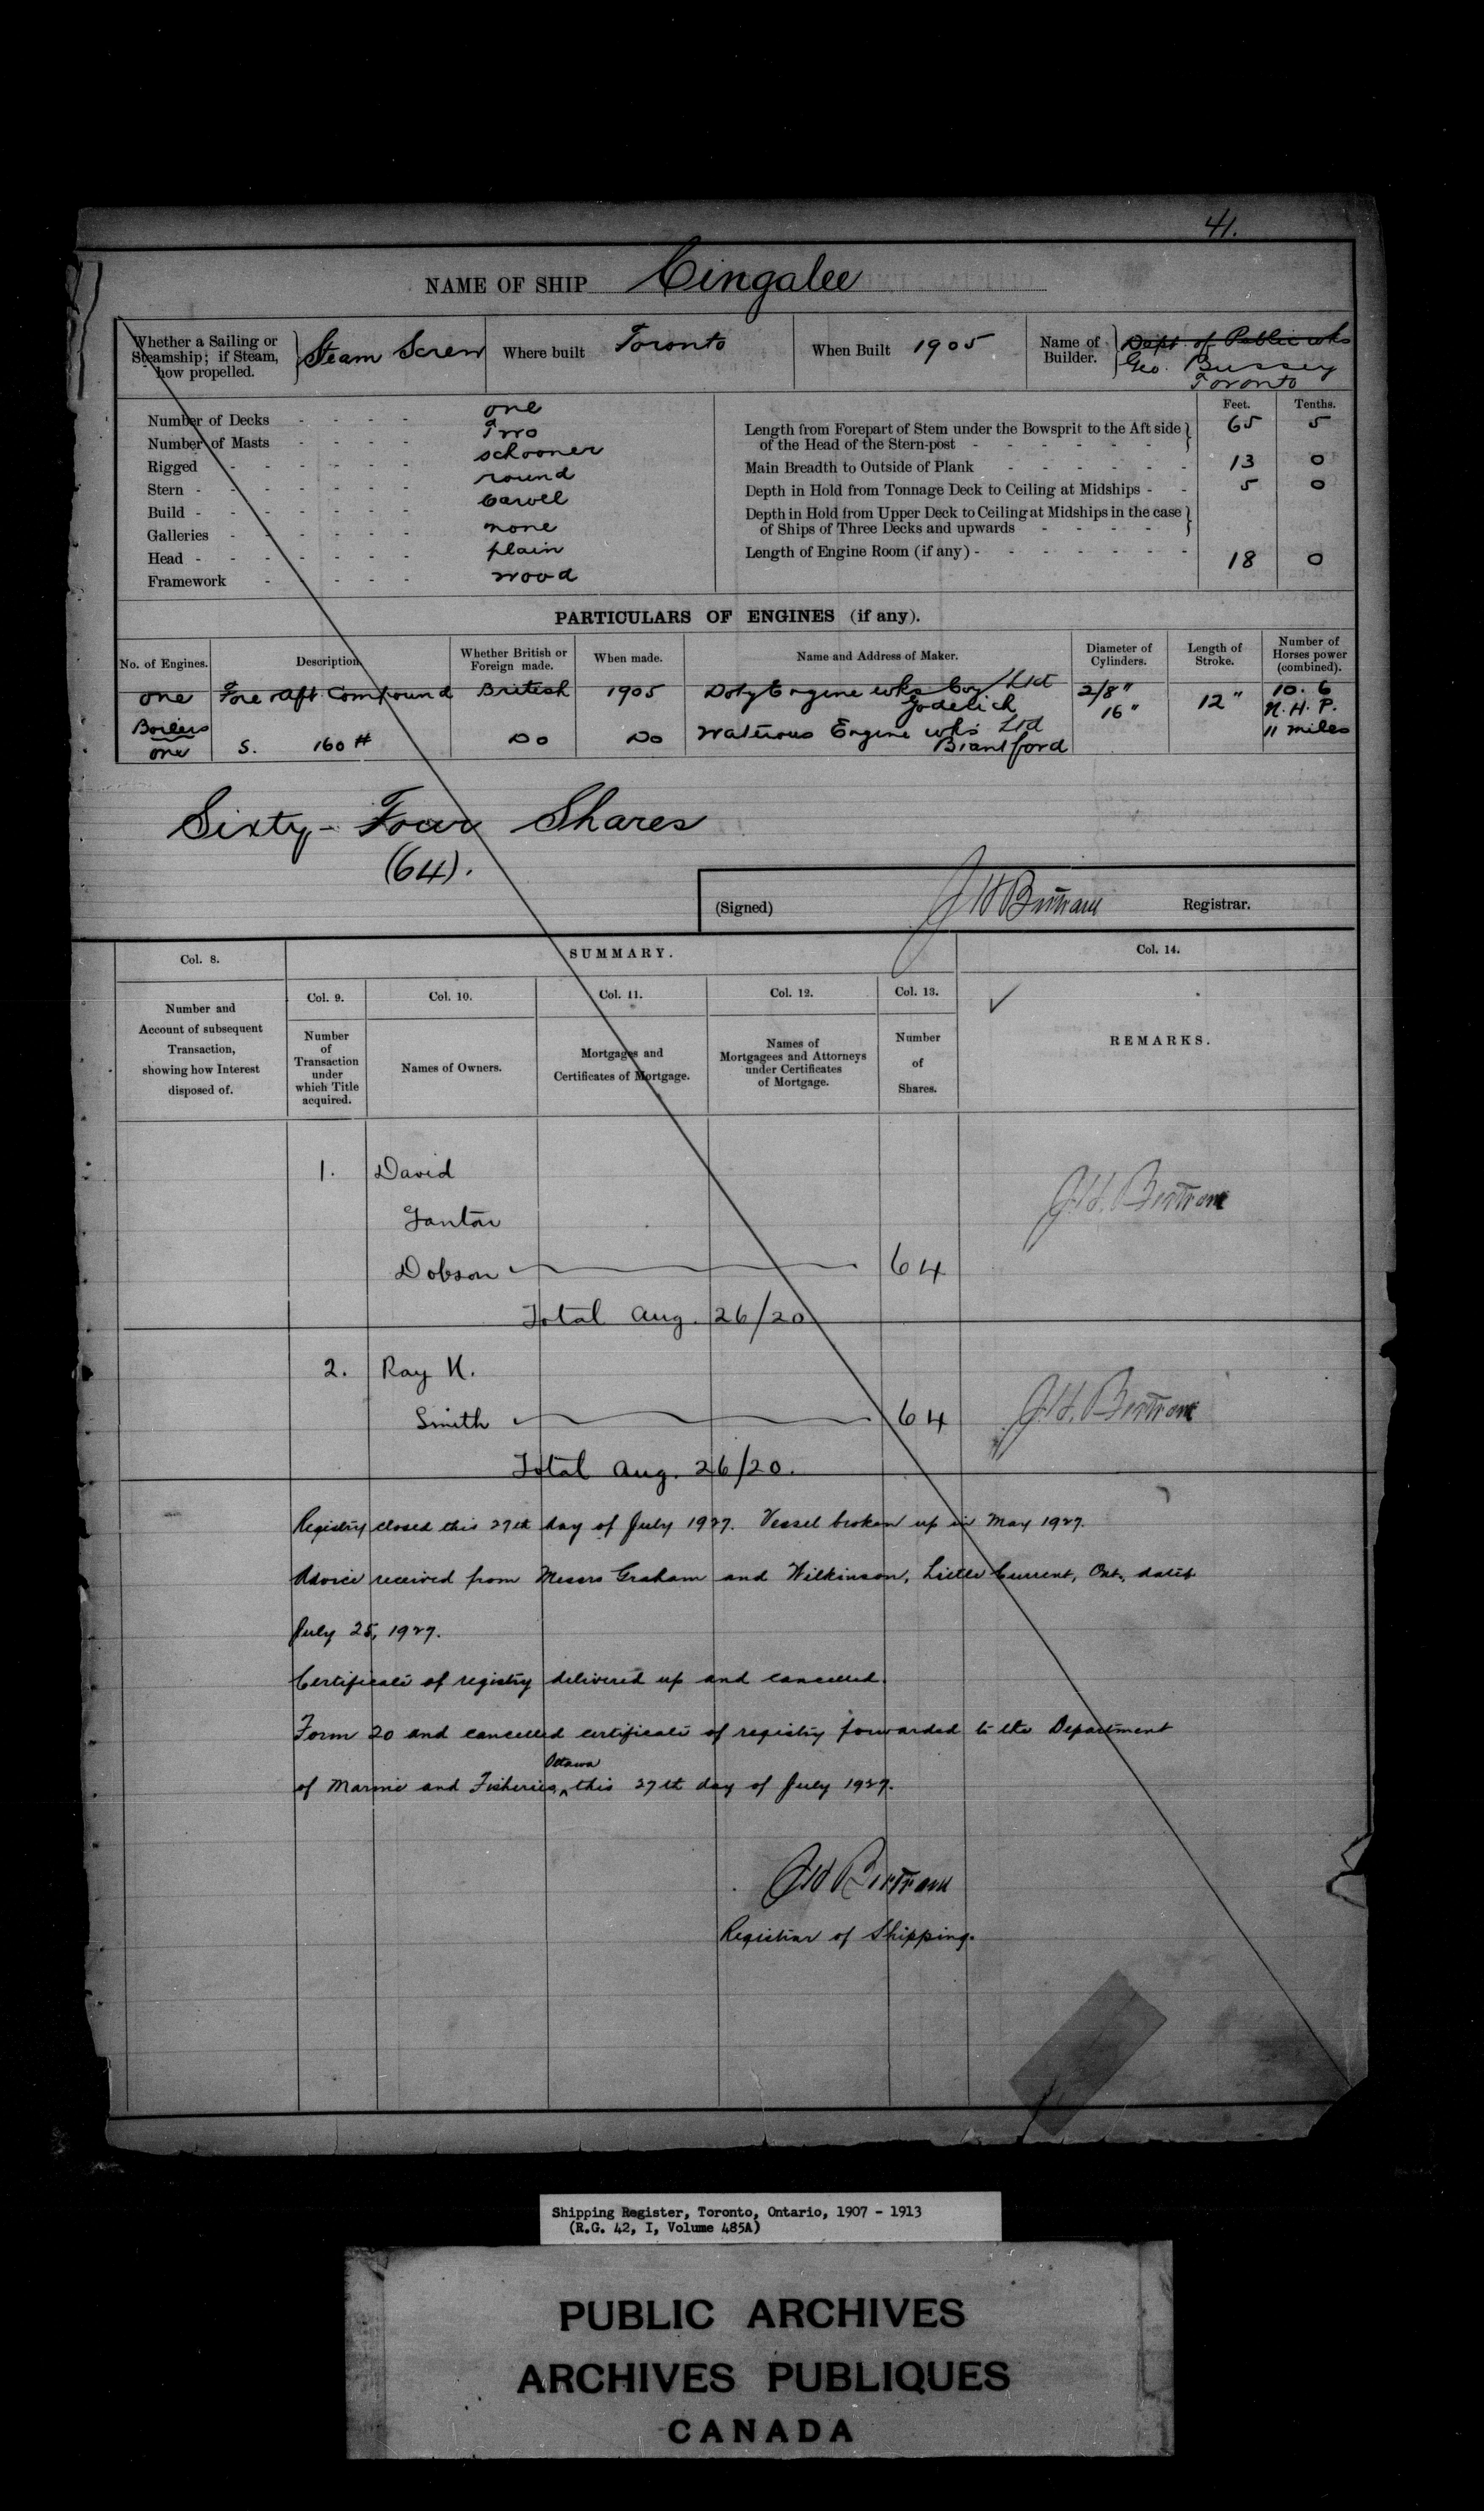 41.
NAME OF SHIP Cingalee
Whether a Sailing or Steamship; if Steam, how propelled. Steam Screw
Where built Toronto
When Built 1905
Name of Builder. Dept of Public wks
Geo. Bussey
Toronto
Number of Decks - - - - one
Number of Masts - - - - Two
Rigged - - - - - schooner
Stern - - - - - - round
Build - - - - - - Carvel
Galleries - - - - - none
Head - - - - - - plain
Framework - - - - wood
Feet. Tenths.
Length from Forepart of Stem under the Bowsprit to the Aft side of the Head of the Stern-post - - - - - - 65 5
Main Breadth to Outside of Plank - - - - - - 13 0
Depth in Hold from Tonnage Deck to Ceiling at Midships - - 5 0
Depth in Hold from Upper Deck to Ceiling at Midships in the case of Ships of Three Decks and upwards - - - -
Length of Engine Room (if any) - - - - - - - 18 0
PARTICULARS OF ENGINES (if any).
No. of Engines. Description. Whether British or Foreign made. When made. Name and Address of Maker. Diameter of Cylinders. Length of Stroke. Number of Horses power (combined).
one Fore & Aft Compound British 1905 Doty Engine wks Coy Ltd Goderich 2/8" 16" 12" 10.6 N.H.P.
Boilers
one S. 160 # Do Do Waterous Engine wks Ltd Brantford 11 miles
Sixty-Four Shares
(64).
(Signed) J H Bertram Registrar.
Col. 8. SUMMARY. Col. 14.
Col. 9. Col. 10. Col. 11. Col. 12. Col. 13.
Number and Account of subsequent Transaction, showing how Interest disposed of.
Number of Transaction under which Title acquired.
Names of Owners.
Mortgages and Certificates of Mortgage.
Names of Mortgagees and Attorneys under Certificates of Mortgage.
Number of Shares.
REMARKS.
1. David
Dobson 64
J.H. Bertram
Total Aug. 26/20
2. Ray H.
Smith 64
J.H. Bertram
Total Aug. 26/20.
Registry closed this 27th day of July 1927. Vessel broken up in May 1927.
Advice received from Messrs Graham and Wilkinson, Little Current, Ont., dated
July 25, 1927.
Certificate of registry delivered up and cancelled.
Form 20 and cancelled certificate of registry forwarded to the Department
of Marine and Fisheries, ^ Ottawa this 27th day of July 1927.
J H Bertram
Registrar of Shipping.
Shipping Register, Toronto, Ontario, 1907 - 1913
(R.G. 42, I, Volume 485A)
PUBLIC ARCHIVES
ARCHIVES PUBLIQUES
CANADA